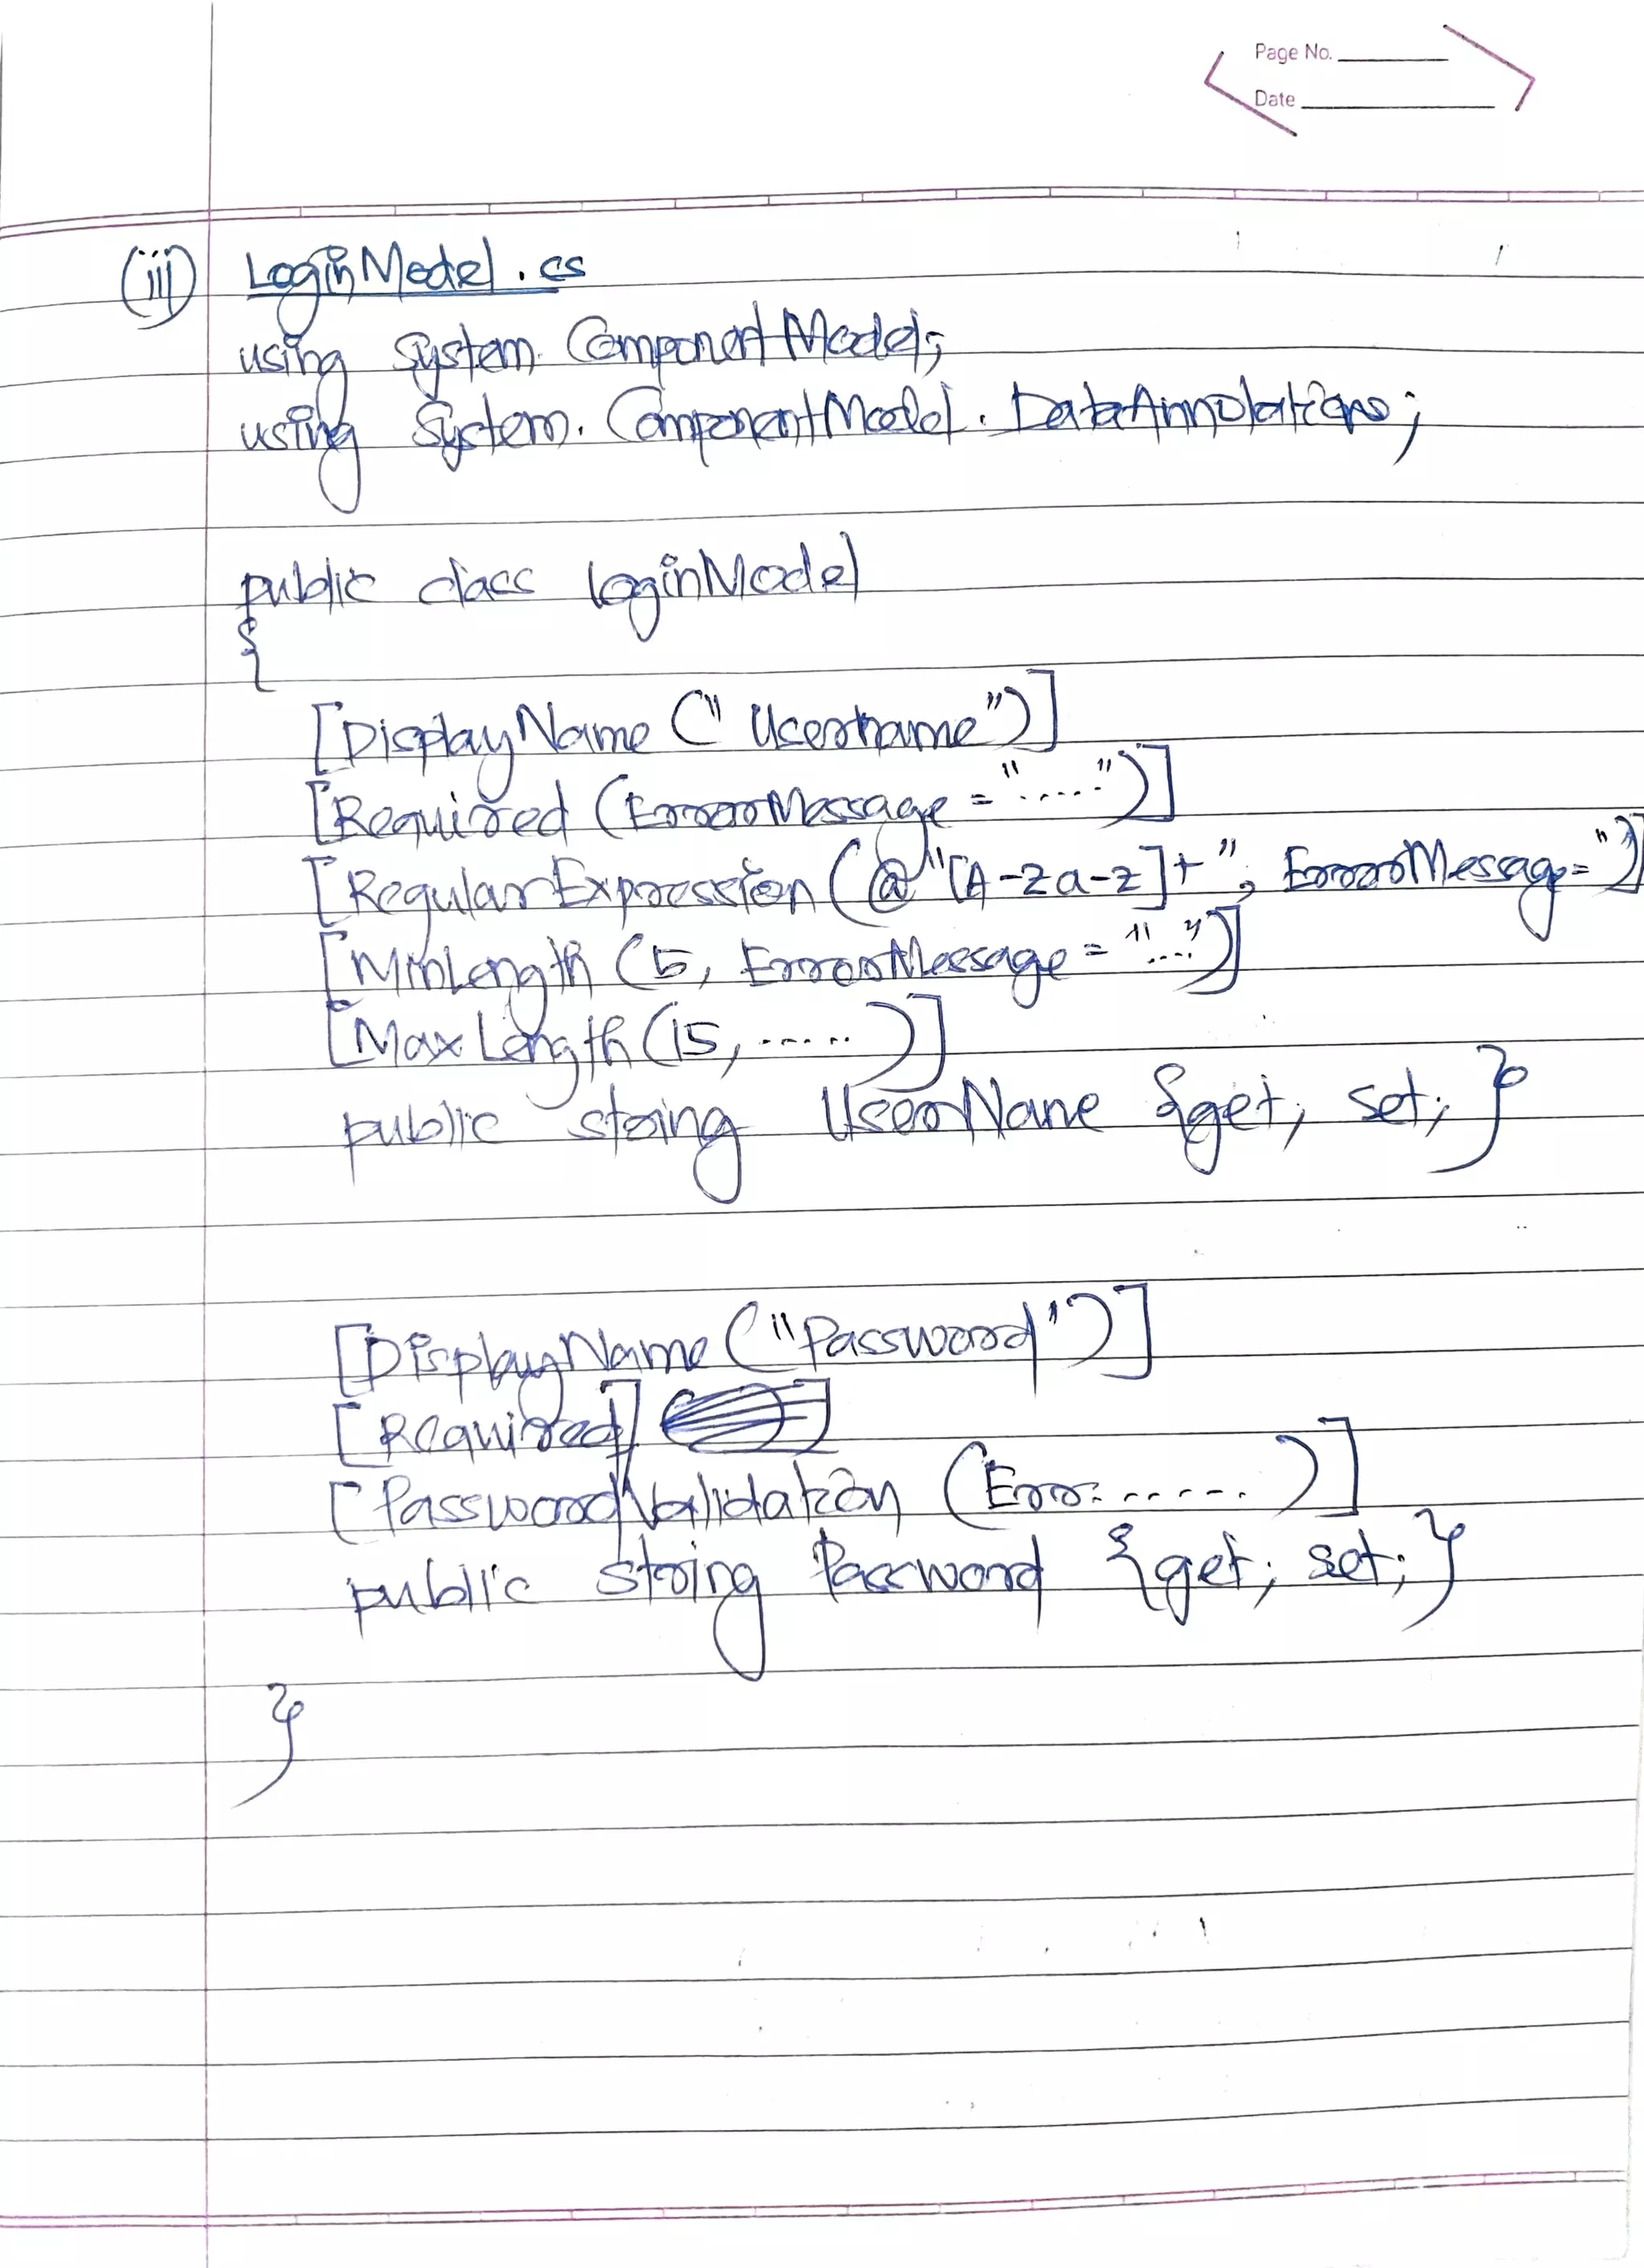 Page No.
Date
(iii) LoginModel.cs
using System.ComponentModel;
using System.ComponentModel.DataAnnotations;
public class LoginModel
{
[DisplayName ("Username")]
[Required (ErrorMessage = ".....")]
[RegularExpression (@"[A-Za-z]+", ErrorMessage=")]
[MinLength (5, ErrorMessage = "....")]
[MaxLength (15, ......)]
public string UserName {get; set;}
[DisplayName ("Password")]
[Required]
[PasswordValidation (Error......)]
public string Password {get; set;}
}